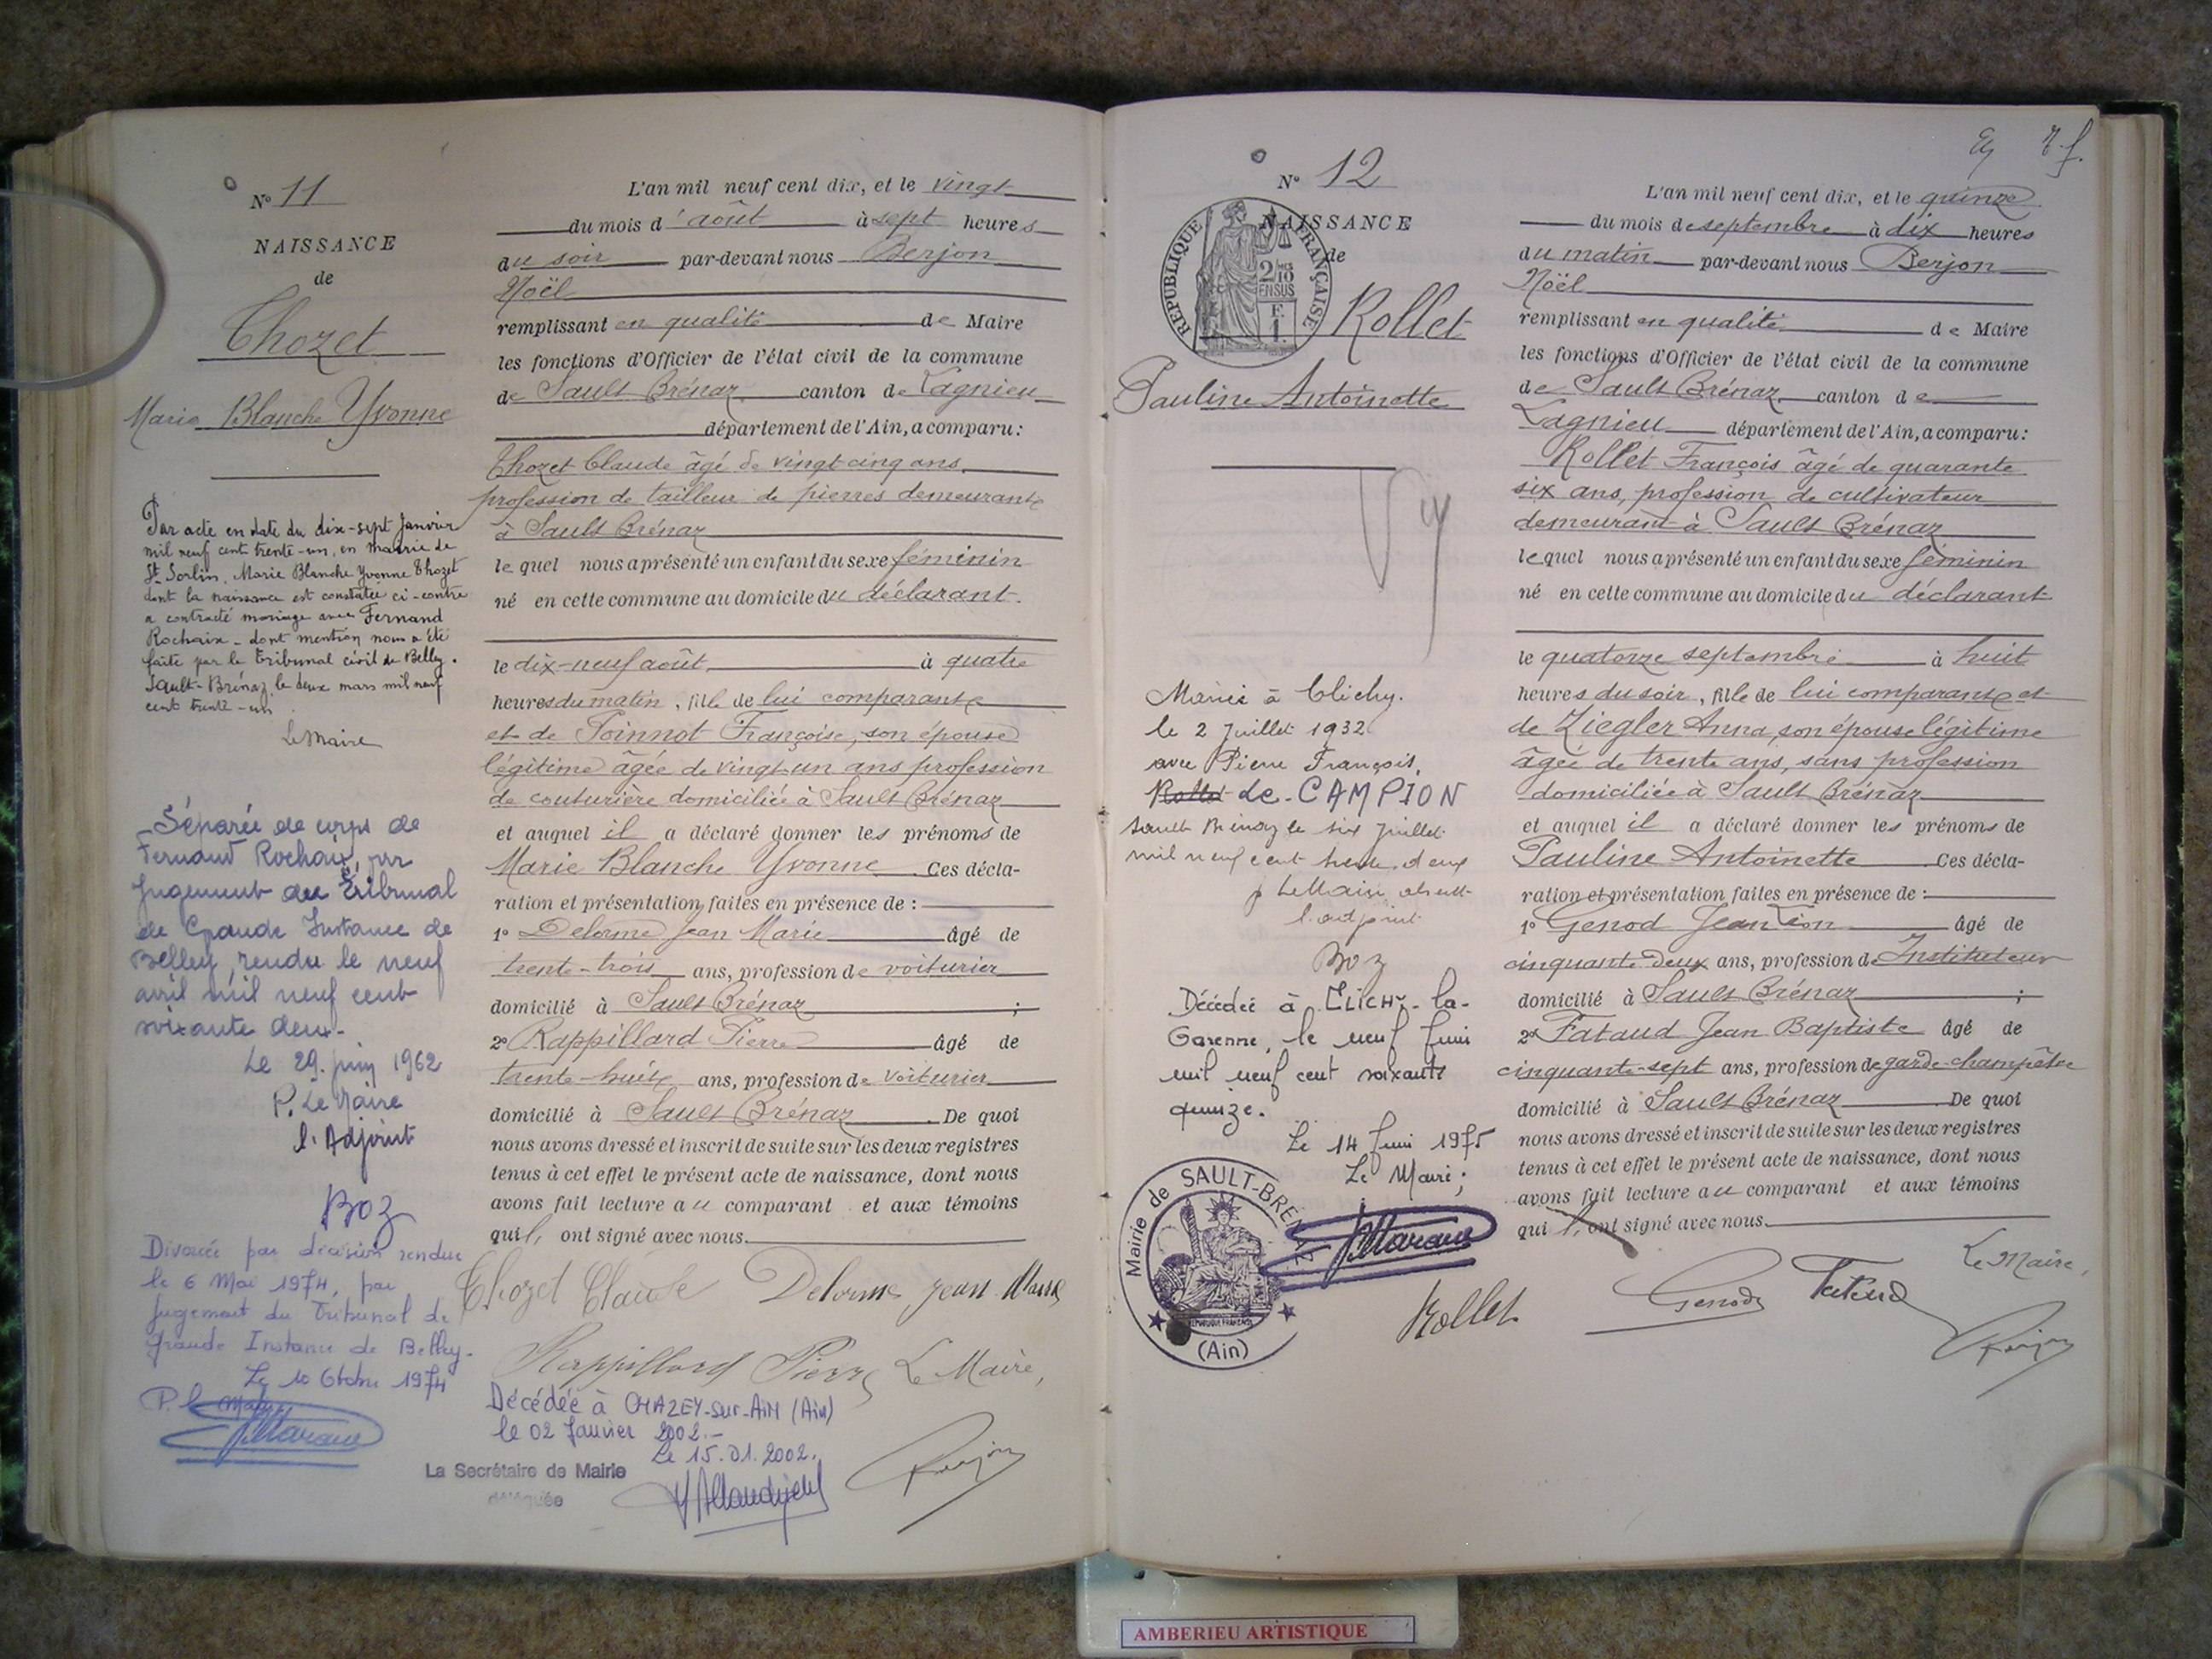 N° 11
NAISSANCE
de
Thozet
Marie Blanche Yvonne
Par acte en date du dix-sept Janvier
mil neuf cent trente-un, en mairie de
St Sorlin, Marie Blanche Yvonne Thozet
dont la naissance est constatée ci-contre
a contracté mariage avec Fernand
Rochaix - dont mention nous a été
faite par le tribunal civil de Belley.
Sault-Brénaz, le deux mars mil neuf
cent trente-un
Le Maire
Séparée de corps de
Fernand Rochaix, par
jugement du Tribunal
de Grande Instance de
Belley, rendu le neuf
avril mil neuf cent
soixante deux.
Le 29 juin 1962
P. Le Maire
l'Adjoint
Boz
Divorcée par décision rendue
le 6 Mai 1974, par
Jugement du Tribunal de
Grande Instance de Belley.
Le 10 Octobre 1974
P. le Maire
L'an mil neuf cent dix, et le vingt
du mois d'août à sept heures
du soir par-devant nous Berjon
Noël
remplissant en qualité de Maire
les fonctions d'Officier de l'état civil de la commune
de Sault Brénaz canton de Lagnieu
département de l'Ain, a comparu:
Thozet Claude âgé de vingt cinq ans
profession de tailleur de pierres demeurant
à Sault Brénaz
le quel nous a présenté un enfant du sexe féminin
né en cette commune au domicile du déclarant.
le dix-neuf août à quatre
heures du matin, fille de lui comparant
et de Toinnot Françoise, son épouse
légitime âgée de vingt un ans profession
de couturière domiciliée à Sault Brénaz
et auquel il a déclaré donner les prénoms de
Marie Blanche Yvonne Ces décla-
ration et présentation faites en présence de :
1° Delorme Jean Marie âgé de
trente-trois ans, profession de voiturier
domicilié à Sault Brénaz ;
2° Rappillard Pierre âgé de
trente-huit ans, profession de voiturier
domicilié à Sault Brénaz. De quoi
nous avons dressé et inscrit de suite sur les deux registres
tenus à cet effet le présent acte de naissance, dont nous
avons fait lecture au comparant et aux témoins
qui l, ont signé avec nous.
Thozet Claude Delorme Jean Marie
Rappillard Pierre Le Maire,
Décédée à CHAZEY-sur-AIN (Ain)
le 02 Janvier 2002.-
Le 15.01.2002.
La Secrétaire de Mairie
déléguée
N° 12
NAISSANCE
de
RÉPUBLIQUE FRANÇAISE
2/10 EN SUS
F. 1.
Rollet
Pauline Antoinette
Mariée à Clichy.
le 2 Juillet 1932
avec Pierre François,
Rollet Le CAMPION
Sault Brénaz le six Juillet
mil neuf cent trente deux
p Le Maire absent
l'adjoint
Boz
Décédée à CLICHY-la-
Garenne, le neuf Juin
mil neuf cent soixante
quinze.
Le 14 Juin 1975
Le Maire ;
Mairie de SAULT-BRÉNAZ
RÉPUBLIQUE FRANÇAISE
(Ain)
L'an mil neuf cent dix, et le quinze
du mois de septembre à dix heures
du matin par-devant nous Berjon
Noël
remplissant en qualité de Maire
les fonctions d'Officier de l'état civil de la commune
de Sault Brénaz canton de
Lagnieu département de l'Ain, a comparu:
Rollet François âgé de quarante
six ans, profession de cultivateur
demeurant à Sault Brénaz
le quel nous a présenté un enfant du sexe féminin
né en cette commune au domicile du déclarant
le quatorze septembre à huit
heures du soir, fille de lui comparant et
de Ziegler Anna, son épouse légitime
âgée de trente ans, sans profession
domiciliée à Sault Brénaz
et auquel il a déclaré donner les prénoms de
Pauline Antoinette Ces décla-
ration et présentation faites en présence de :
1° Genod Jean Léon âgé de
cinquante deux ans, profession de Instituteur
domicilié à Sault Brénaz ;
2° Fataud Jean Baptiste âgé de
cinquante-sept ans, profession de garde-champêtre
domicilié à Sault Brénaz De quoi
nous avons dressé et inscrit de suite sur les deux registres
tenus à cet effet le présent acte de naissance, dont nous
avons fait lecture au comparant et aux témoins
qui l, ont signé avec nous.
Le Maire,
Rollet Genod Fataud
AMBERIEU ARTISTIQUE